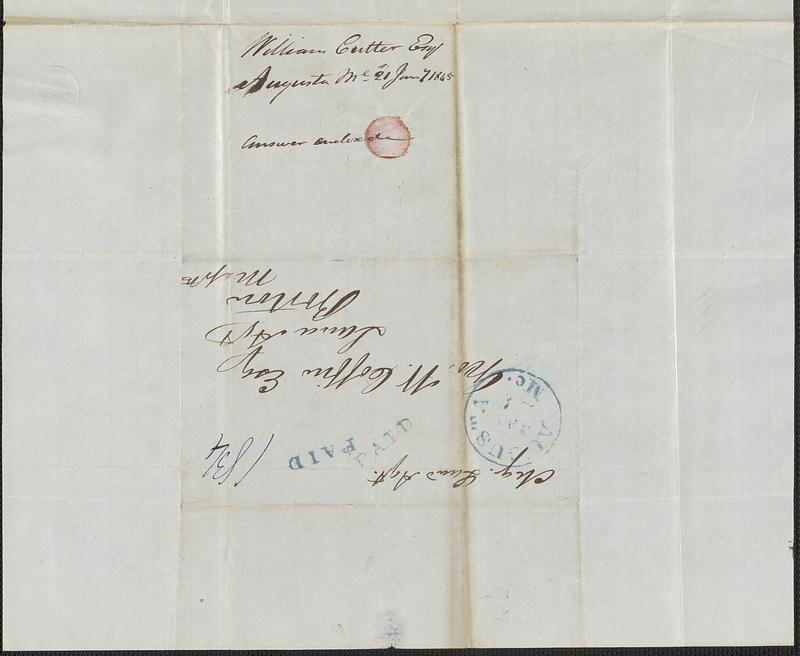 William Cutter Esq
Augusta Me 21 Jany 1845
Answer enclosed
Geo. W. Coffin Esq
Land Agt
Boston
Chg. Land Agt.
PAID
PAID
AUGUSTA
JAN
Me.